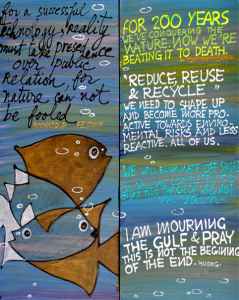 for a successful
technology, reality
must take presence
over public
relation, for
nature can not
be fooled.
FOR 200 YEARS
WE'VE CONQUERING THE
NATURE. NOW WE'RE
BEATING IT TO DEATH.
"REDUCE, REUSE
& RECYCLE"
WE NEED TO SHAPE UP
AND BECOME MORE PRO-
ACTIVE TOWARDS ENVIRO-
MENTAL RISKS AND LESS
REACTIVE. ALL OF US.
I AM MOURNING
THE GULF & PRAY
THIS IS NOT THE BEGINING
OF THE END.